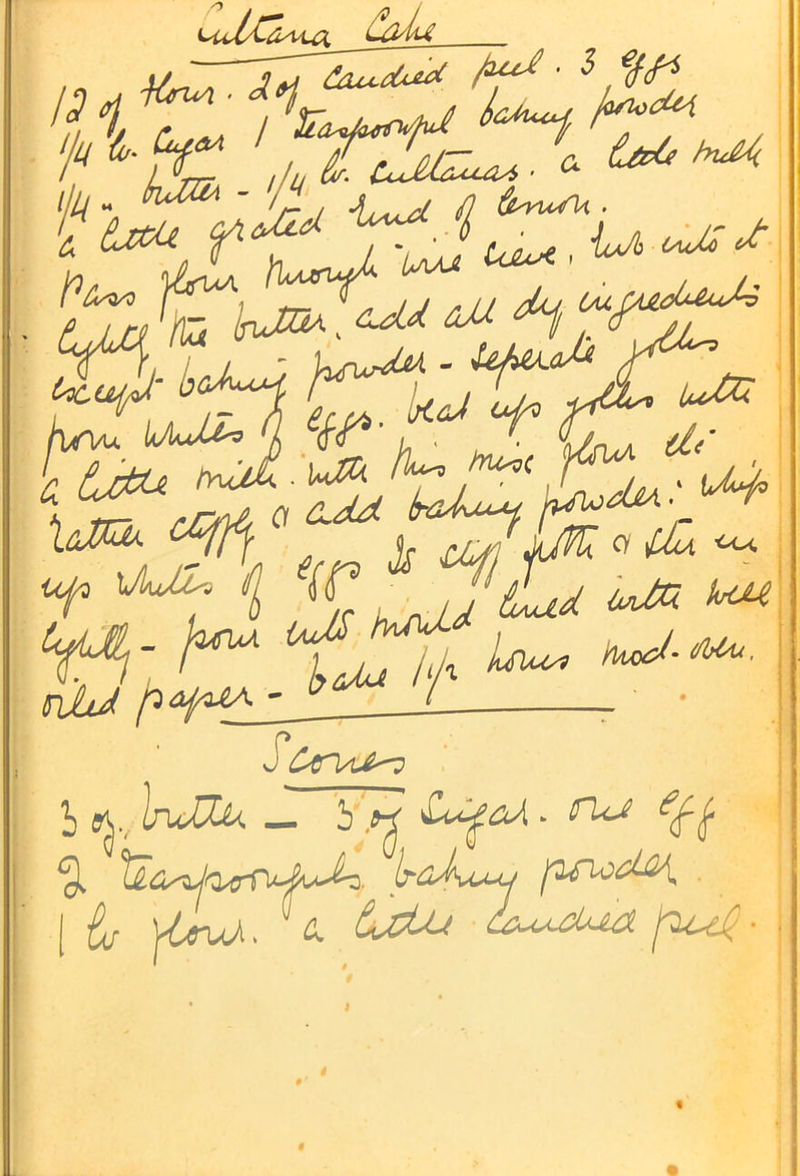 Sultana Cake
12 oz flour. 2 oz Candied peel. 3 eggs
1/4 lb. Sugar 1 teaspoonful baking powder
1/4 " butter - 1/4 lb. Sultanas. a little milk
a little grated rind of lemon.
Pass flour through wire sieve, rub into it
lightly the butter, add all dry ingredients
except baking powder - seperate yolks
from whites of eggs. beat up yolks with
a little milk. with this mix flour etc.
latter stiffly & add baking powder: whip
up whites of eggs to stiff froth & stir in
lightly - pour into mould lined with well
oiled paper - bake 1 1/2 hours mod. oven.
Scones
3 oz. butter - 3 oz Sugar. one egg
2 teaspoonfuls baking powder
1 lb flour. a little candied peel.